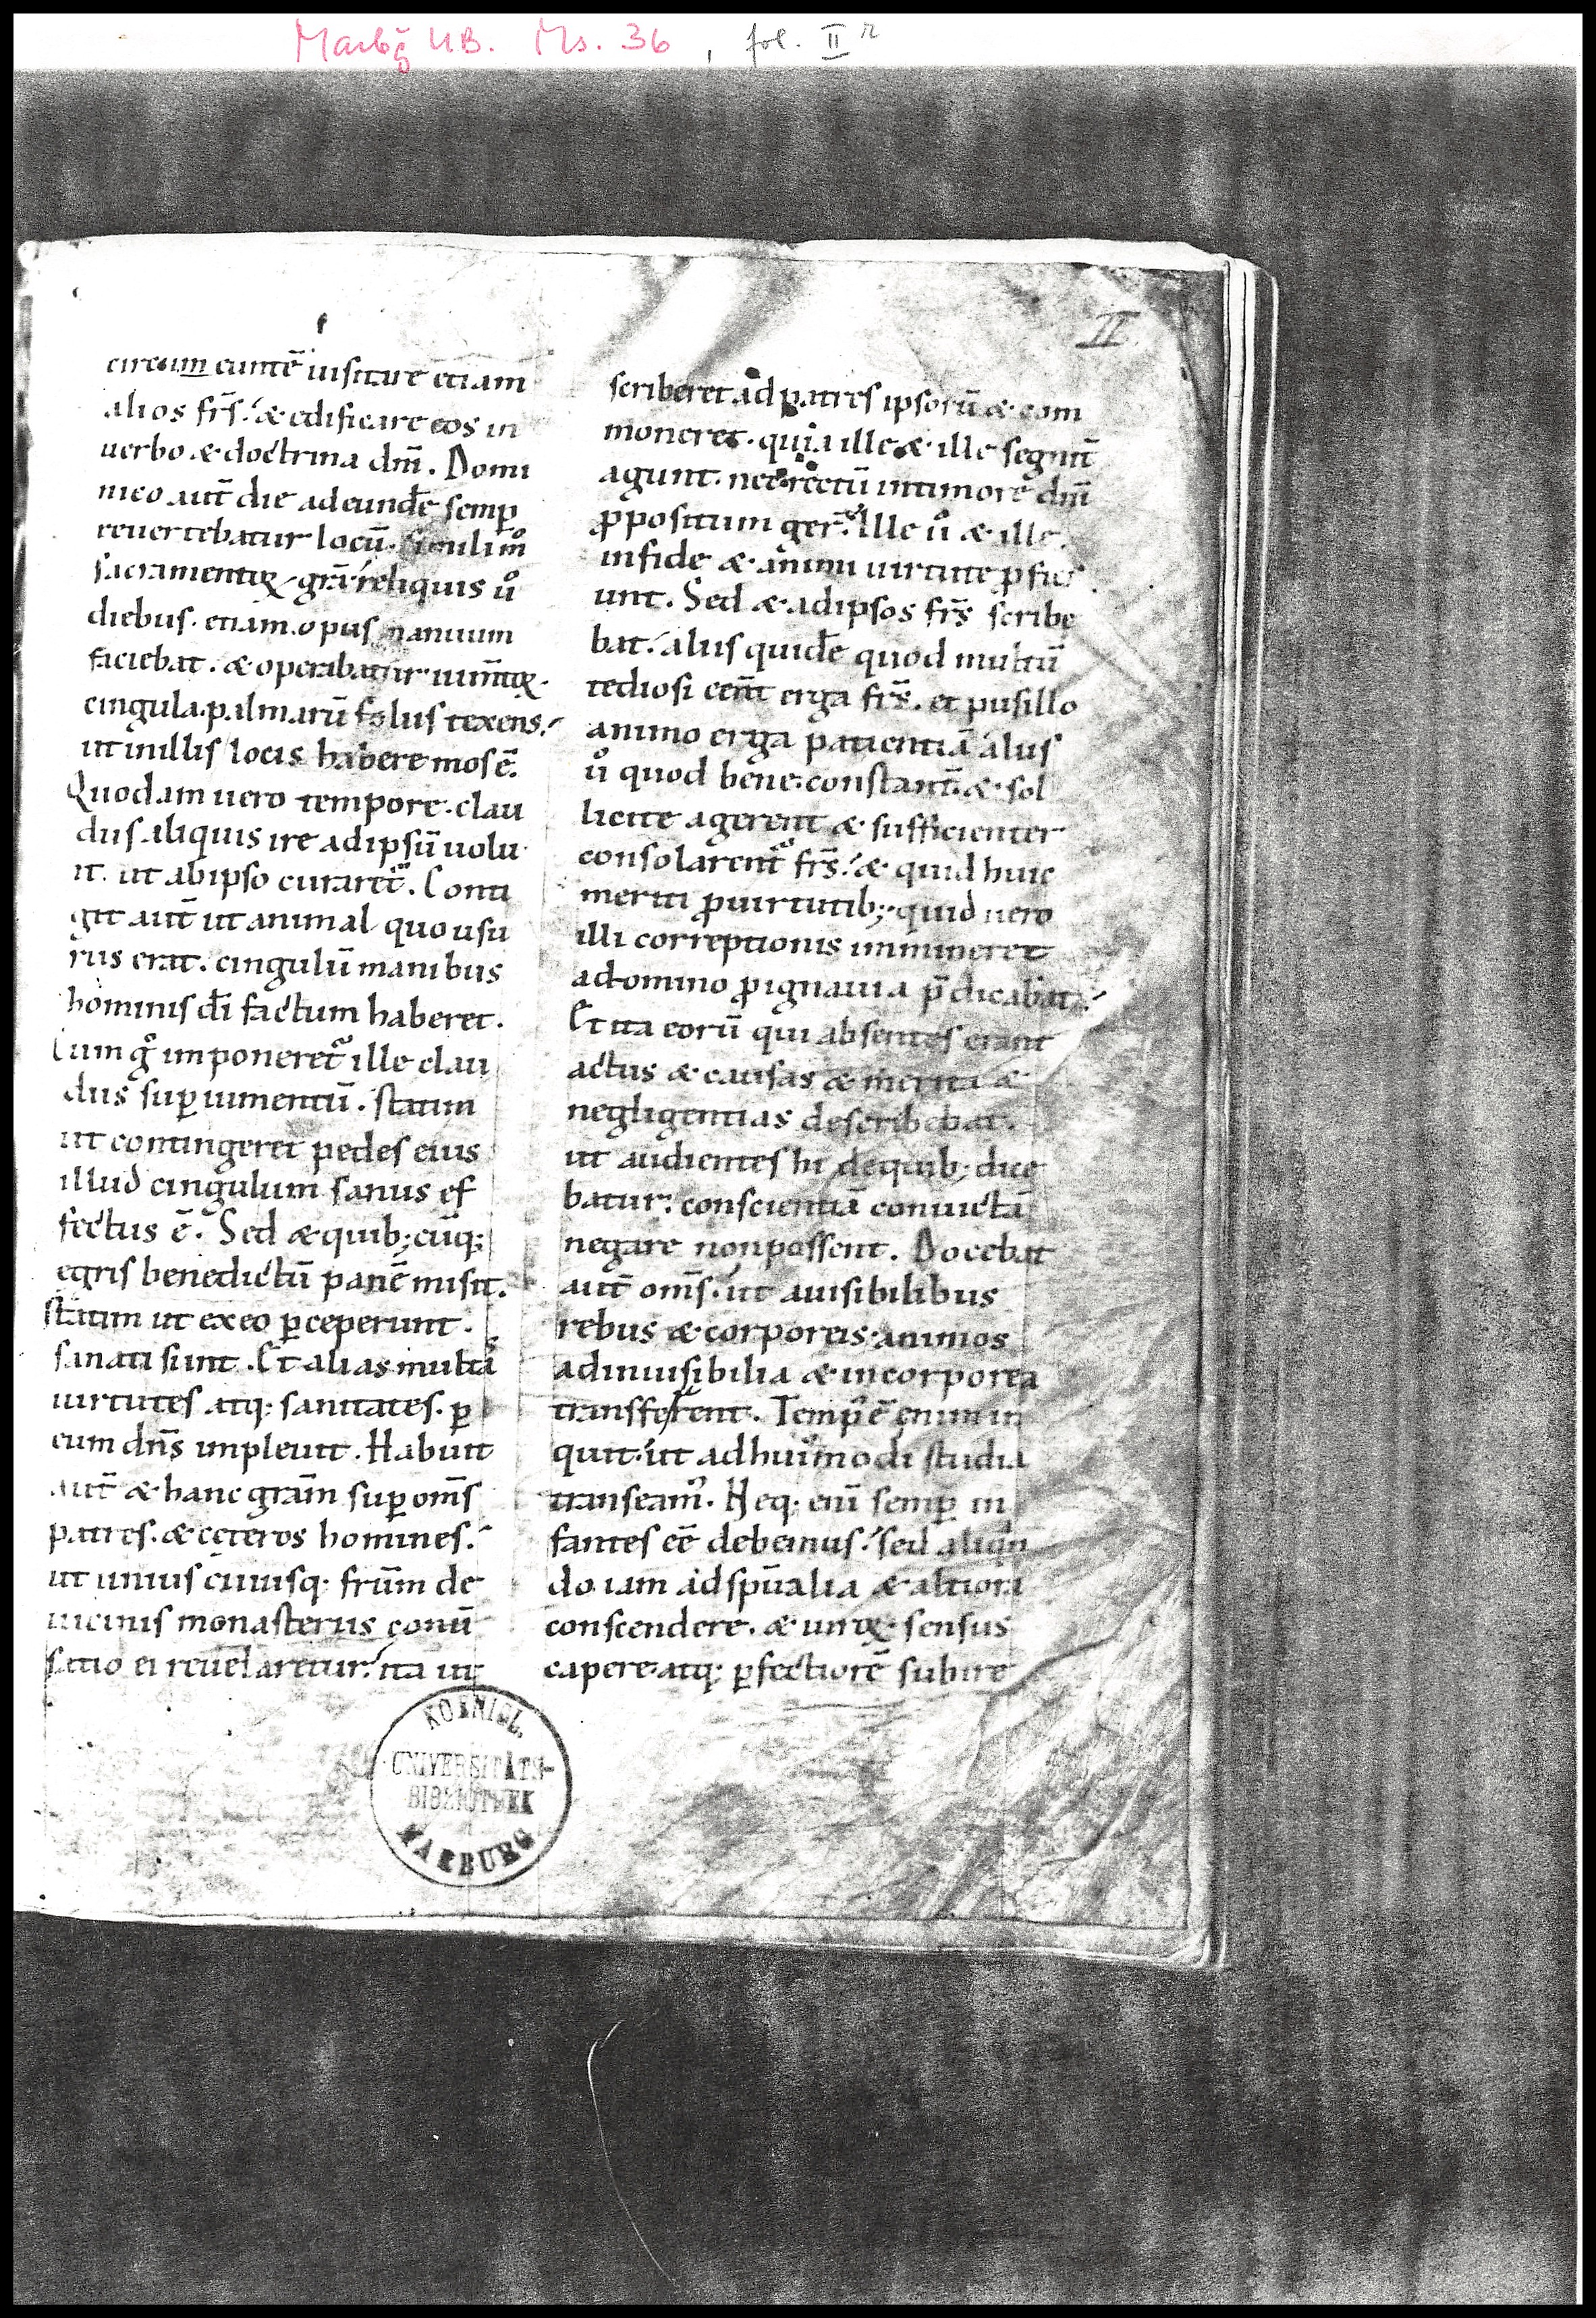 Marbg UB. Ms. 36 , fol. II r
II
circum euntē uisitare etiam
alios fr̄s. & edificare eos in
uerbo & doctrina dn̄i. Domi
nico aut̄ die ad eundē semp
reuertebatur locū. simili m̊
sacramentoꝝ grā reliquis ů
diebus. etiam opus manuum
faciebat. & operabatur iumtoꝝ
cingula. palmarū foliis texens.
ut in illis locis habere mos ē.
Quodam uero tempore. clau
dus aliquis ire ad ipsū uolu
it. ut ab ipso curaret̃. Conti
git aut̄ ut animal quo usu
rus erat. cingulū manibus
hominis dī factum haberet.
Cum gͦ imponeret̃ ille clau
dus suꝑ iumentū. statim
ut contingeret pedes eius
illud cingulum sanus ef
fectus ē. Sed & quib; cūq;
egris benedictū panē misit.
statim ut ex eo ꝑceperunt.
sanati sunt. Et alias multas
uirtutes atq; sanitates. ꝑ
eum dn̄s impleuit. Habuit
aut̄ & hanc grām suꝑ om̄s
patres. & ceteros homines.
ut unius cuiusq; fr̄um de
uicinis monasteriis conū
satio ei reuelaretur. ita ut
scriberet ad patres ipsorū & com
moneret. quia ille & ille segniꝰ
agunt. nec rectū in timore dn̄i
ꝓpositum ger̄. Ille ů & ille.
in fide & animi uirtute ꝓfici
unt. Sed & ad ipsos fr̄s scribe
bat. aliis quidē quod multū
tediosi eēnt erga fr̄s. et pusillo
animo erga patientiā aliis
ů quod bene. constant̄. & sol
licite agerent & sufficienter
consolarent̃ fr̄s. & quid huic
meriti ꝓ uirtutib;. quid uero
illi correptionis immineret
a domino ꝓ ignauia p̄dicabat.
Et ita eorū qui absentes erant
actus & causas & merita &
negligentias describebat.
ut audientes hi de quib; dice
batur. conscientiā conuictā
negare non possent. Docebat
aut̄ om̄s. ut a uisibilibus
rebus & corporeis. animos
ad inuisibilia & incorporea
transferrent. Temp̄ ē enim in
quit. ut ad huiꝰmodi studia
transeamꝰ. Neq; enī semꝑ in
fantes eē debemus. sed aliqn̄
do iam ad spūalia & altiora
conscendere. & uiroꝝ sensus
capere. atq; ꝑfectiorē subire
KOENIGL.
UNIVERSITÄTS-
BIBLIOTHEK
MARBURG